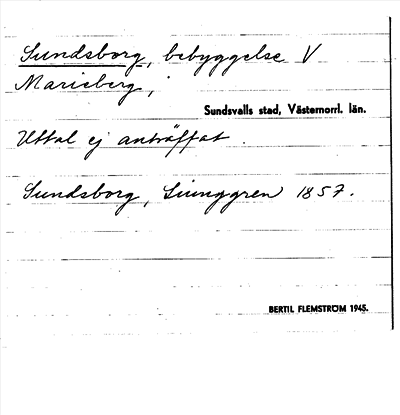 Sundsborg, bebyggelse V
Marieberg,
Sundsvalls stad, Västernorrl. län.
Uttal ej anträffat.
Sundsborg, Ljunggren 1857.
BERTIL FLEMSTRÖM 1945.